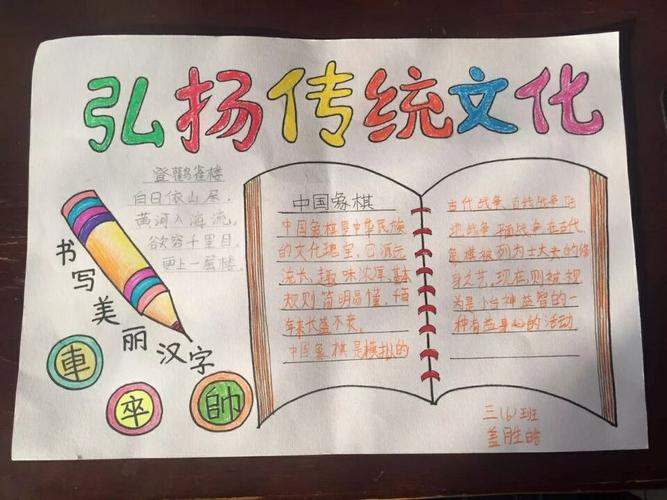 弘扬传统文化
登鹳雀楼
白日依山尽,
黄河入海流,
欲穷千里目,
更上一层楼.
书写美丽汉字
車
卒
帥
中国象棋
中国象棋是中华民族
的文化瑰宝,它源远
流长,趣味浓厚,基本
规则简明易懂,千百
年来长盛不衰.
中国象棋是模拟的
古代战争、直线战争、陆
地战争、平面战争.在古代,
象棋被列为士大夫的修
身之艺,现在,则被视
为是个怡神益智的一
种有益身心的活动.
三(6)班